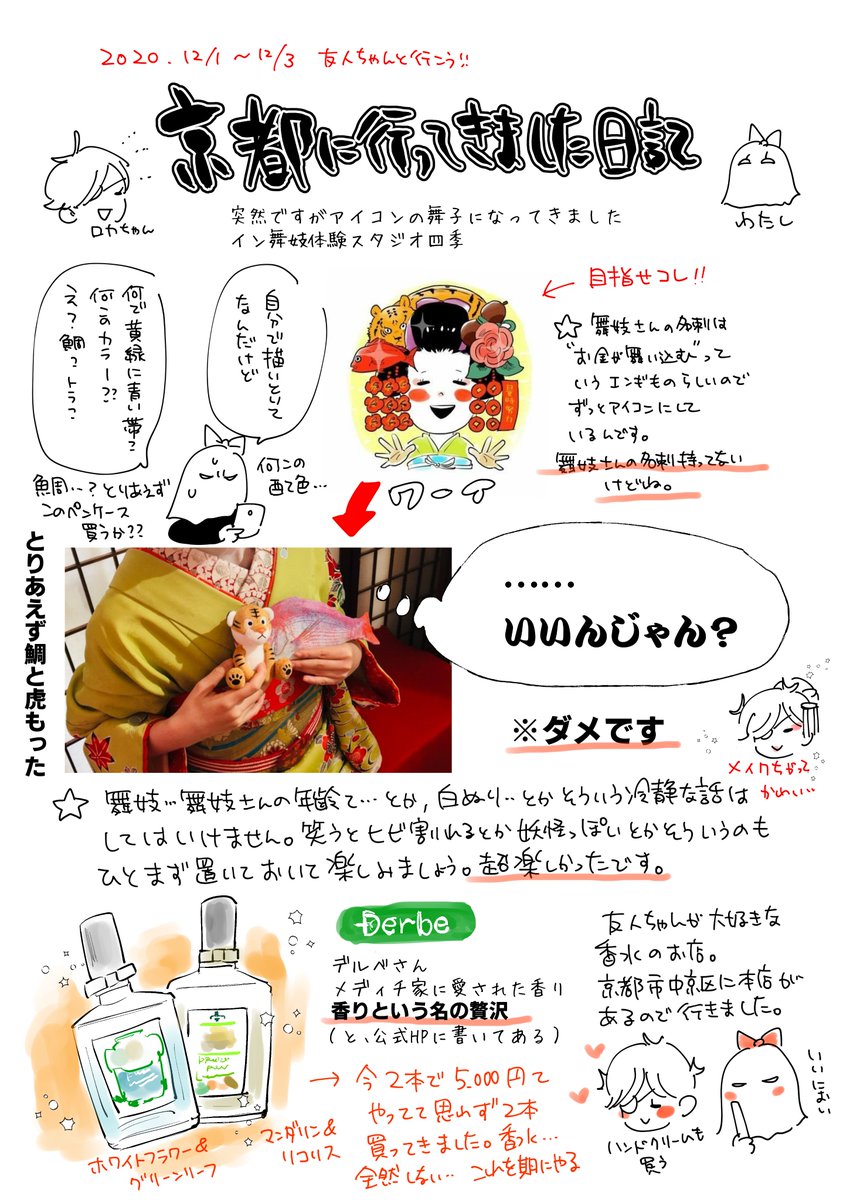 2020.12/1〜12/3 友人ちゃんと行こう!!
京都に行ってきました日記
ロカちゃん
わたし
突然ですがアイコンの舞子になってきました
イン舞妓体験スタジオ四季
目指せコレ!!
自分で描いといて
なんだけど
何で黄緑に青い帯?
何このカラー??
え?鯛?トラ?
☆舞妓さんの名刺は
"お金が舞い込む"って
いうエンギものらしいので
ずっとアイコンにして
いるんです。
舞妓さんの名刺持ってない
けどね。
何この
配色…
鯛…?とりあえず
このペンケース
買うか??
ワーイ
とりあえず鯛と虎もった
……
いいんじゃん?
※ダメです
メイクちがって
かわいい…
☆舞妓…舞妓さんの年齢て…とか,白ぬり…とかそういう冷静な話は
してはいけません。笑うとヒビ割れるとか妖怪っぽいとかそういうのも
ひとまず置いておいて楽しみましょう。超楽しかったです。
Derbe
デルベさん
メディチ家に愛された香り
香りという名の贅沢
(と、公式HPに書いてある)
友人ちゃんが大好きな
香水のお店。
京都市中京区に本店が
あるので行きました。
→今2本で5.000円て
やってて思わず2本
買ってきました。香水…
全然しない…これを期にやる
ホワイトフラワー&
グリーンリーフ
マンダリン&
リコリス
ハンドクリームも
買う
いいにおい